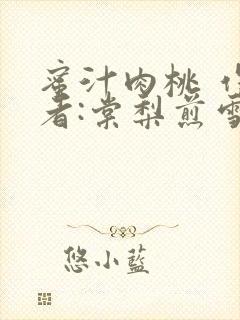 蜜汁肉桃 作
者:棠梨煎雪
悠小蓝